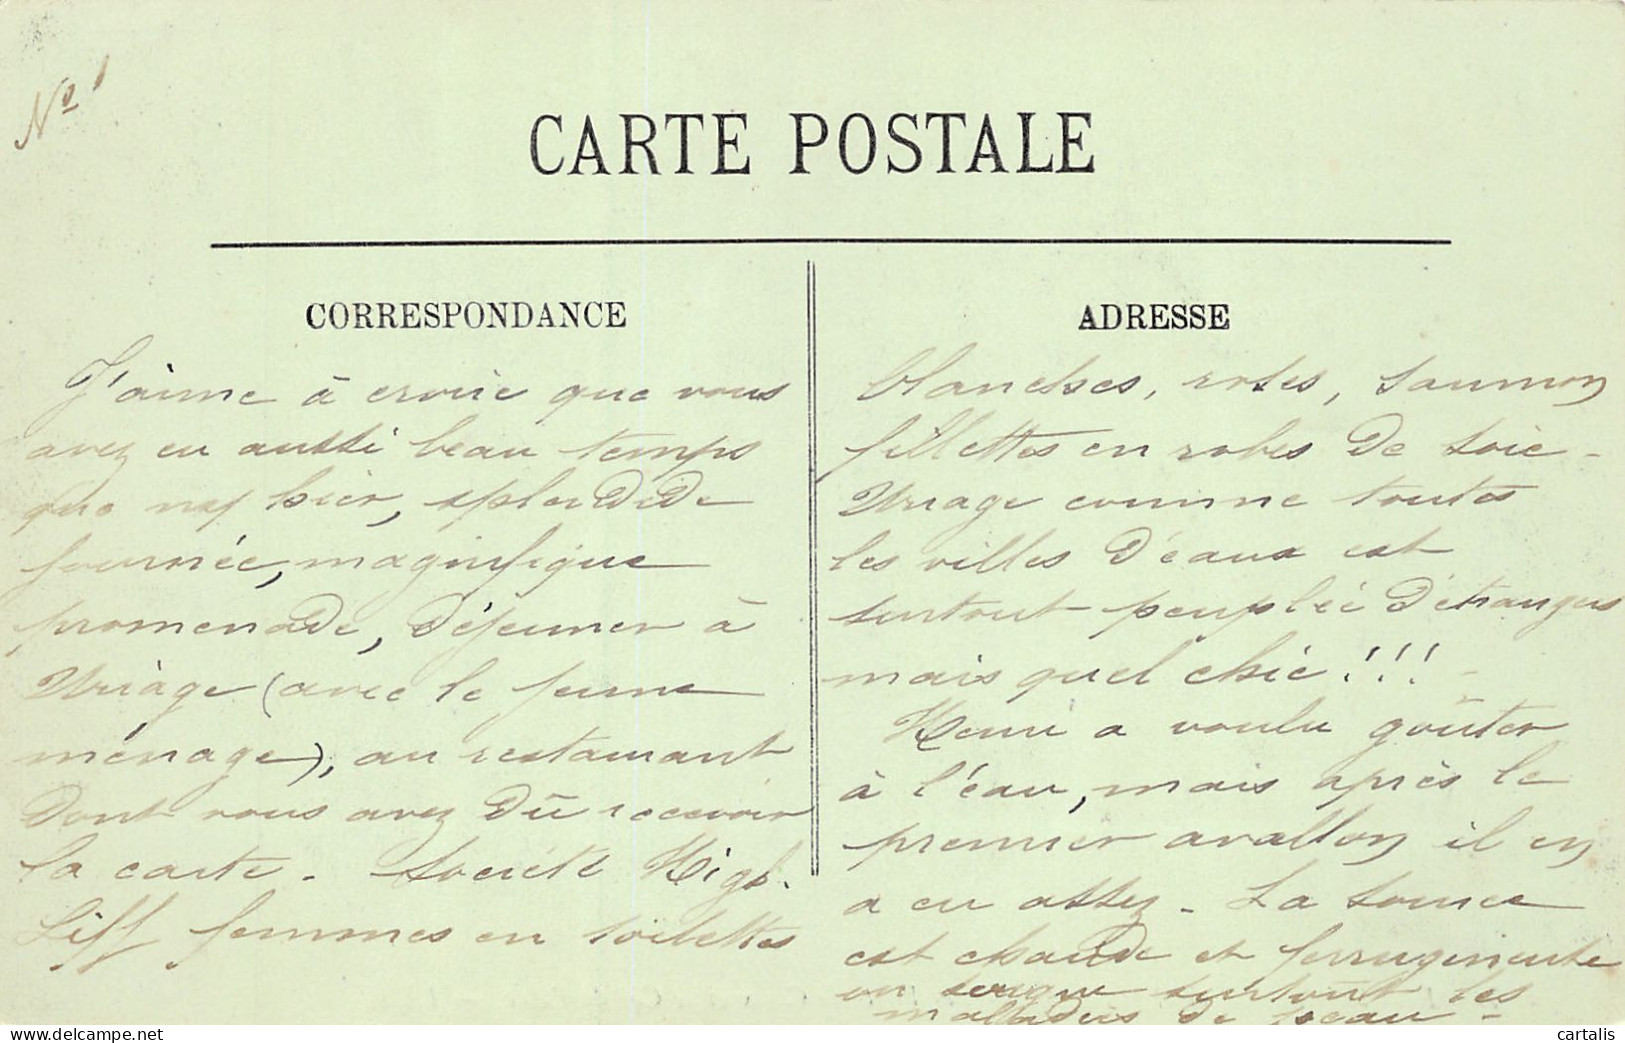 N° 1
CARTE POSTALE
CORRESPONDANCE
J'aime à croire que vous
avez eu aussi beau temps
que nous hier, splendide
journée, magnifique
promenade, déjeuner à
Uriage (avec le jeune
ménage), au restaurant
dont vous avez dû recevoir
la carte. Société High-
Liff femmes en toilettes
ADRESSE
blanches, roses, saumon
fillettes en robes de soie -
Uriage comme toutes
les villes d'eaux est
surtout peuplée d'étrangers
mais quel chic !!! -
Henri a voulu goûter
à l'eau, mais après le
premier avallon il en
a eu assez - La source
est chaude et ferrugineuse
on soigne surtout les
malladies de peau -
cartalis